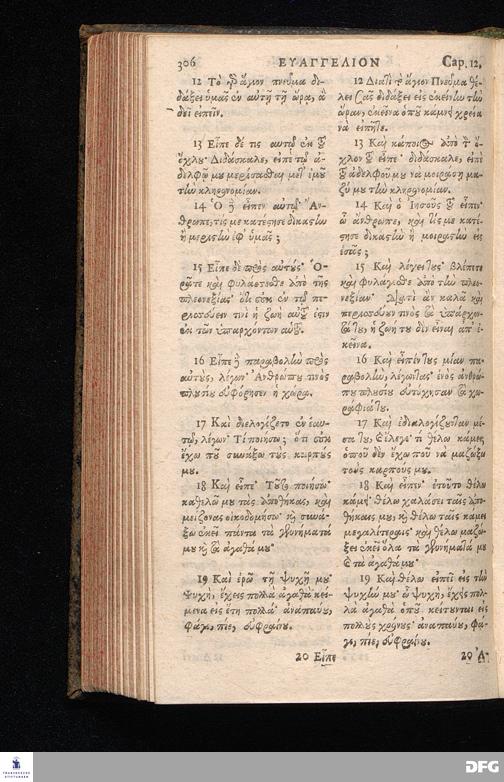 306 ΕΥΑΓΓΕΛΙΟΝ Cap. 12,
12 Τὸ γὰρ ἅγιον πνεῦμα δι-
δάξει ὑμᾶς ἐν αὐτῇ τῇ ὥρᾳ, ἃ
δεῖ εἰπεῖν.
13 Εἶπε δέ τις αὐτῷ ἐκ τοῦ
ὄχλου· Διδάσκαλε, εἰπὲ τῷ ἀ-
δελφῷ μου μερίσασθαι μετ' ἐμοῦ
τὴν κληρονομίαν.
14 Ὁ δὲ εἶπεν αὐτῷ· Ἄν-
θρωπε, τίς με κατέστησε δικαστὴν
ἢ μεριστὴν ἐφ' ὑμᾶς;
15 Εἶπε δὲ πρὸς αὐτούς· Ὁ-
ρᾶτε καὶ φυλάσσεσθε ἀπὸ τῆς
πλεονεξίας· ὅτι οὐκ ἐν τῷ πε-
ρισσεύειν τινὶ ἡ ζωὴ αὐτοῦ ἐστιν
ἐκ τῶν ὑπαρχόντων αὐτοῦ.
16 Εἶπε δὲ παραβολὴν πρὸς
αὐτοὺς, λέγων· Ἀνθρώπου τινὸς
πλουσίου εὐφόρησεν ἡ χώρα.
17 Καὶ διελογίζετο ἐν ἑαυ-
τῷ, λέγων· Τί ποιήσω; ὅτι οὐκ
ἔχω ποῦ συνάξω τοὺς καρποὺς
μου.
18 Καὶ εἶπε· Τοῦτο ποιήσω·
καθελῶ μου τὰς ἀποθήκας, καὶ
μείζονας οἰκοδομήσω· καὶ συνά-
ξω ἐκεῖ πάντα τὰ γεννήματά
μου καὶ τὰ ἀγαθά μου·
19 Καὶ ἐρῶ τῇ ψυχῇ μου·
Ψυχὴ, ἔχεις πολλὰ ἀγαθὰ κεί-
μενα εἰς ἔτη πολλά· ἀναπαύου,
φάγε, πίε, εὐφραίνου.
20 Εἶπε
12 Διατὶ τὸ ἅγιον Πνεῦμα θέ-
λει σᾶς διδάξει εἰς ἐκείνην τὴν
ὥραν, ἐκεῖνα ὁποῦ κάμνει χρεία
νὰ εἰπῆτε.
13 Καὶ κάποιος ἀπὸ τὸν ὄ-
χλον τοῦ εἶπε· διδάσκαλε, εἰπὲ
τοῦ ἀδελφοῦ μου νὰ μοιράσῃ μα-
ζύ μου τὴν κληρονομίαν.
14 Καὶ ὁ Ἰησοῦς τοῦ εἶπεν·
ὦ ἄνθρωπε, καὶ τίς με κατέ-
στησε δικαστὴν ἢ μοιραστὴν εἰς
ἐσᾶς;
15 Καὶ λέγει τους· βλέπετε
καὶ φυλάγεσθε ἀπὸ τὴν πλεο-
νεξίαν· Διατὶ ἂν καλὰ καὶ
περισσεύουν τινος τὰ ὑπάρχον-
τά του, ἡ ζωή του δὲν εἶναι ἀπ' ἐ-
κεῖνα.
16 Καὶ εἶπέν τους μίαν πα-
ραβολὴν, λέγωντας· ἑνὸς ἀνθρώ-
που πλουσίου εὐτύχησαν τὰ χω-
ράφιά του.
17 Καὶ ἐδιαλογίζουνταν μέ-
σα του, καὶ ἔλεγε· τί θέλω κάμει,
ὁποῦ δὲν ἔχω ποῦ νὰ μαζώξω
τοὺς καρπούς μου.
18 Καὶ εἶπεν· ἐτοῦτο θέλω
κάμῃ· θέλω χαλάσει ταῖς ἀπο-
θήκαις μου, καὶ θέλω ταῖς κάμει
μεγαλίτεραις· καὶ θέλω μαζώ-
ξει ἐκεῖ ὅλα τὰ γεννήματά μου
καὶ τὰ ἀγαθά μου·
19 Καὶ θέλω εἰπεῖ εἰς τὴν
ψυχήν μου· ὦ ψυχὴ, ἔχεις πολ-
λὰ ἀγαθὰ ὁποῦ κείτουνται εἰς
πολλοὺς χρόνους· ἀναπαύου, φά-
γε, πίε, εὐφραίνου.
20 Ἀ-
DFG